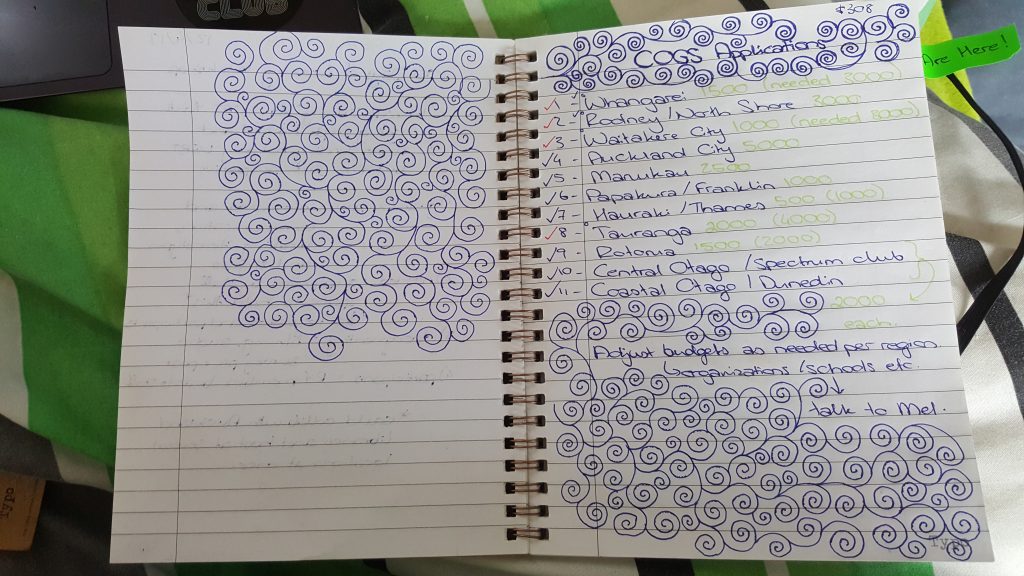 CLUB
$308
COGS Applications
Are Here!
✓1 - Whangarei 1500 (needed 3000)
✓2 - Rodney/North Shore 3000
✓3 - Waitakere City 1000 (needed 8000)
✓4 - Auckland City 5000
✓5 - Manukau 2500
✓6 - Papakura/Franklin 1000
✓7 - Hauraki/Thames 500 (1000)
✓8 - Tauranga 2000 (4000)
✓9 - Rotorua 1500 (2000)
✓10 - Central Otago /Spectrum club
✓11 - Coastal Otago / Dunedin
2000
each.
Adjust budgets as needed per region
/organizations/schools etc.
↓
talk to Mel.
Typo
Typo